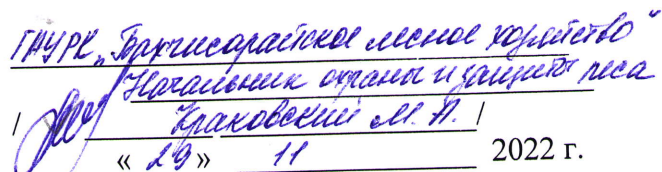 ГАУРК „Бахчисарайское лесное хозяйство"
Начальник охраны и защиты леса
/ Краковский М. П. /
« 29 » 11 2022 г.